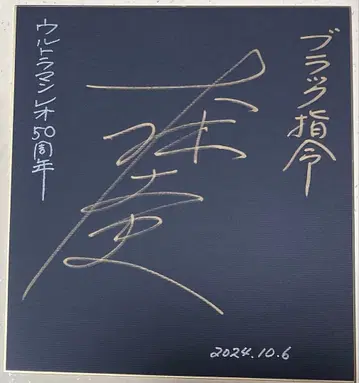 ブラック指令
ウルトラマンレオ50周年
2024.10.6